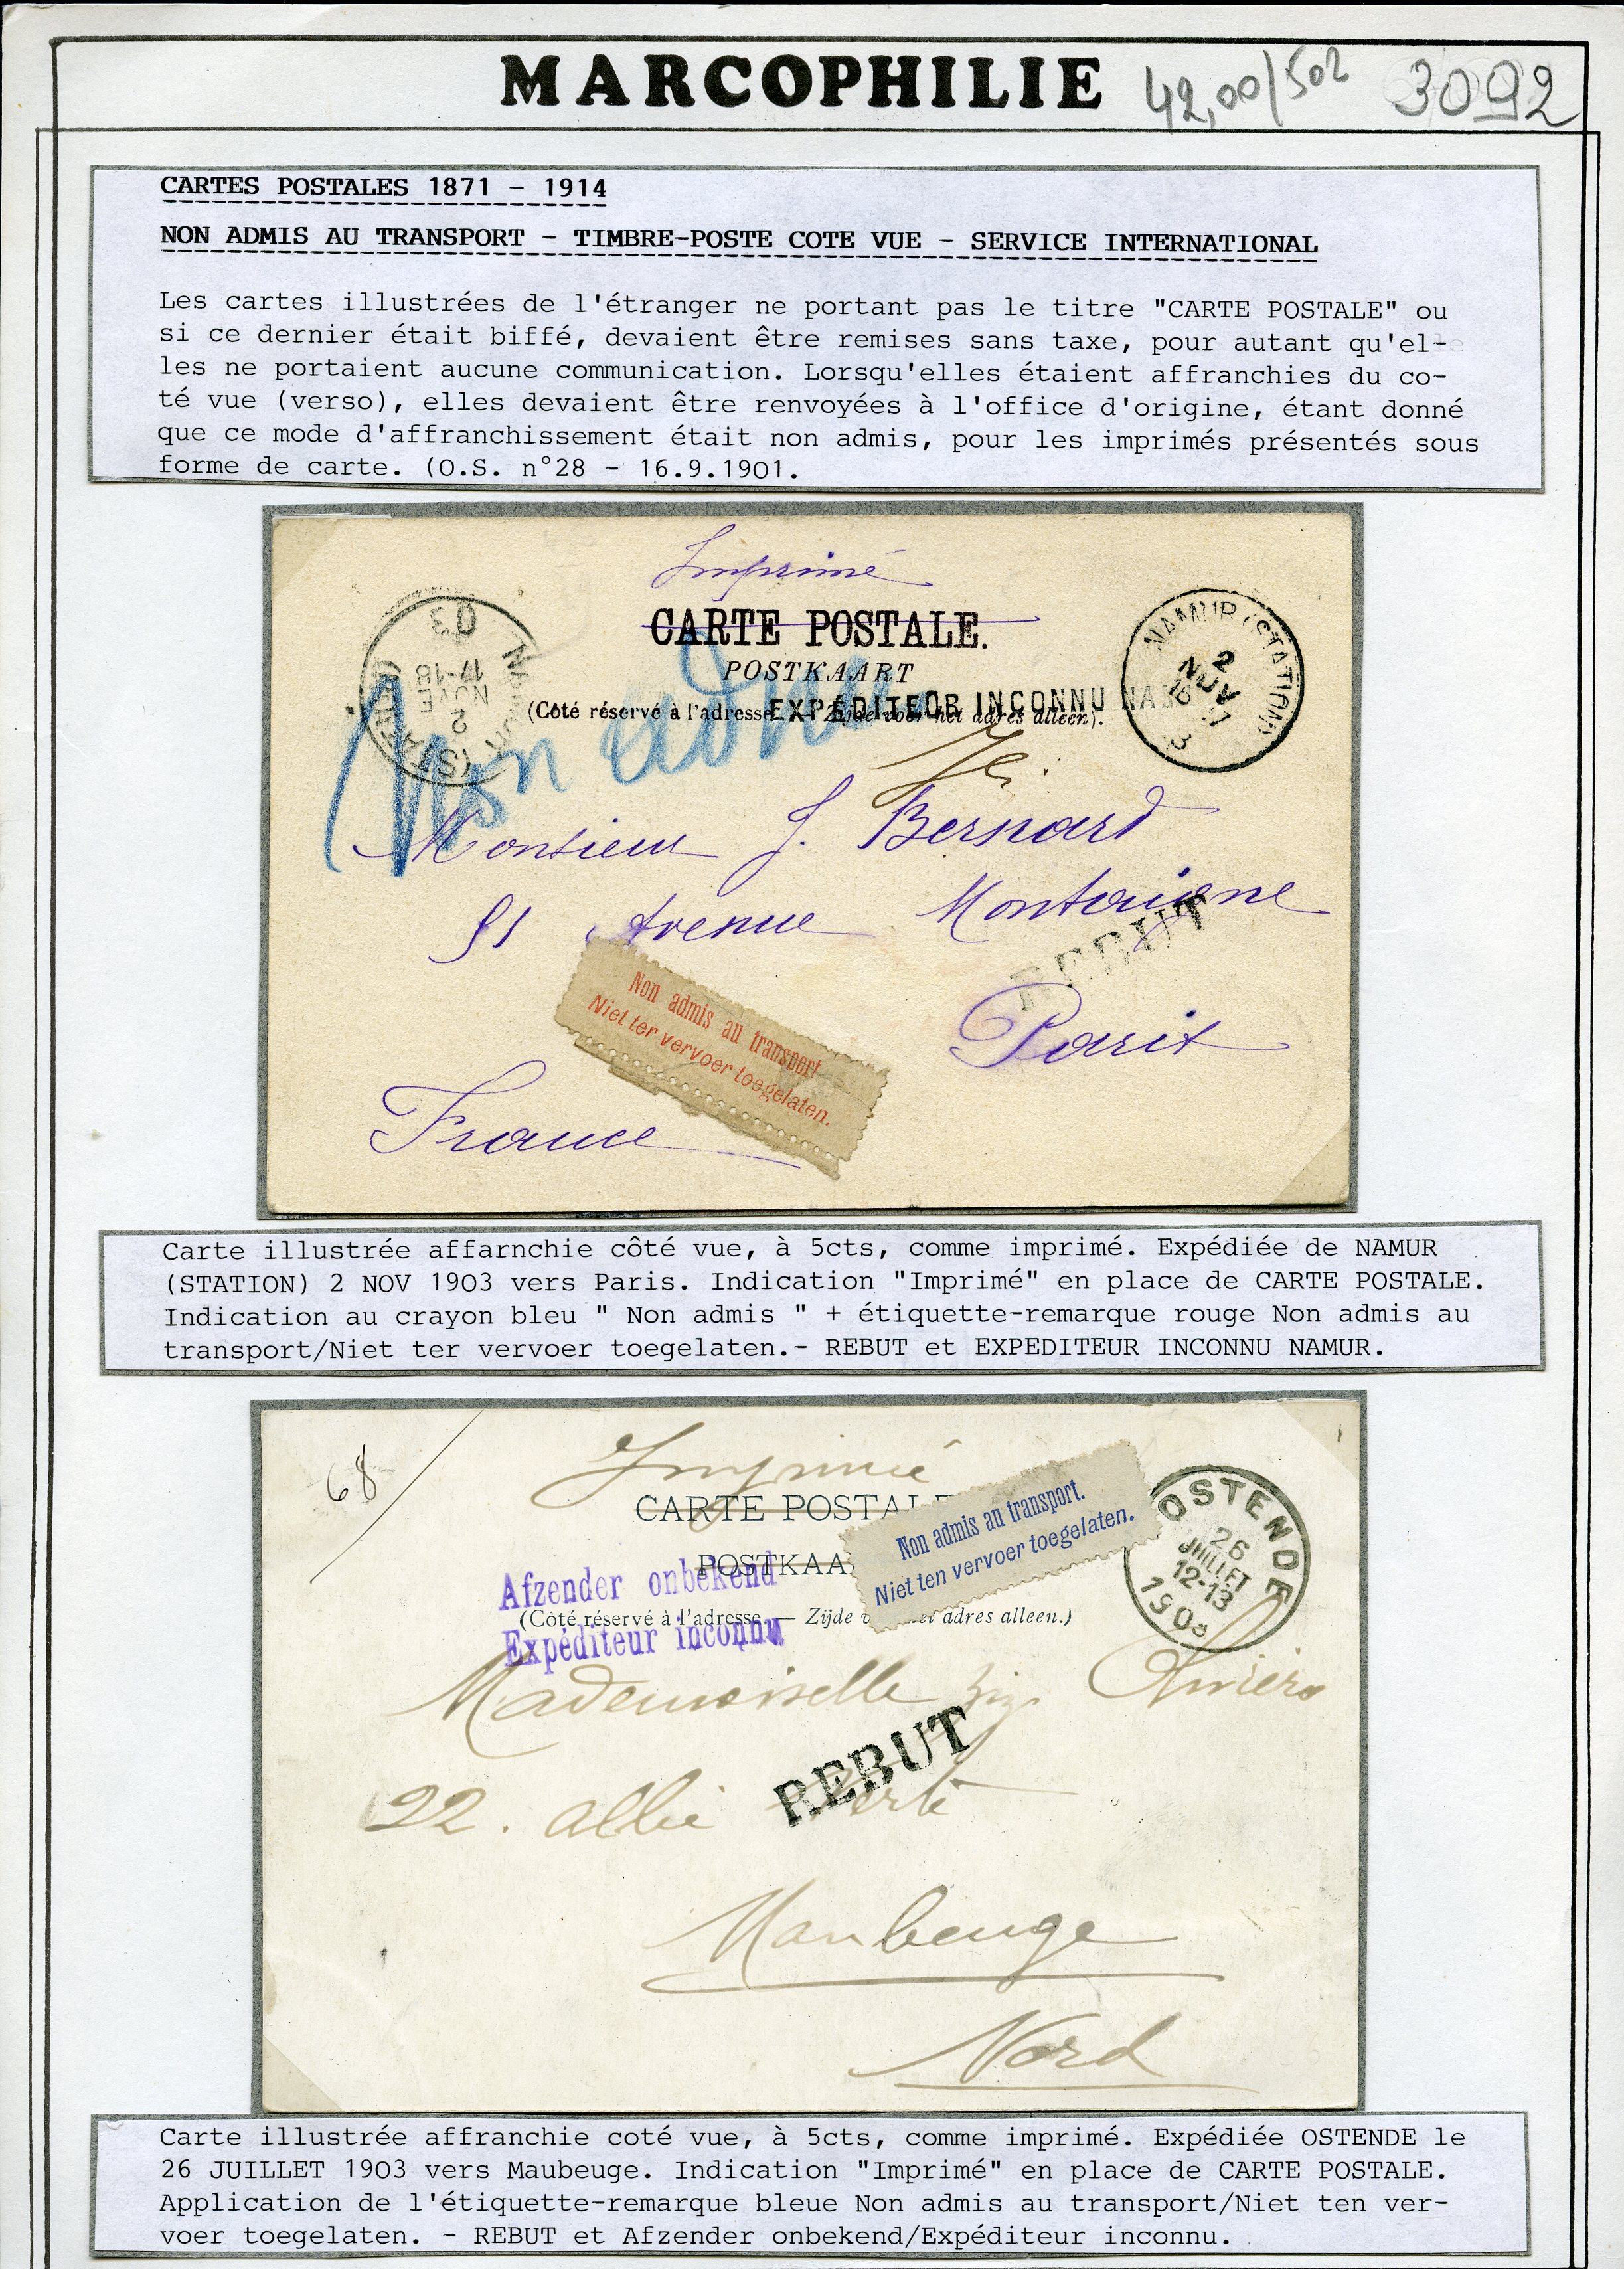 MARCOPHILIE
42,00/502
3092
CARTES POSTALES 1871 - 1914
NON ADMIS AU TRANSPORT - TIMBRE-POSTE COTE VUE - SERVICE INTERNATIONAL
Les cartes illustrées de l'étranger ne portant pas le titre "CARTE POSTALE" ou
si ce dernier était biffé, devaient être remises sans taxe, pour autant qu'el-
les ne portaient aucune communication. Lorsqu'elles étaient affranchies du co-
té vue (verso), elles devaient être renvoyées à l'office d'origine, étant donné
que ce mode d'affranchissement était non admis, pour les imprimés présentés sous
forme de carte. (O.S. n°28 - 16.9.1901.
Imprimé
CARTE POSTALE.
POSTKAART
(Côté réservé à l'adresse. — Zijde voor het adres alleen).
EXPÉDITEUR INCONNU NA
NAMUR (STATION)
2
NOV
03
17-18
NOV
2
Non admis
Monsieur J. Bernard
51 Avenue Montaigne
REBUT
Paris
France
Non admis au transport
Niet ter vervoer toegelaten.
Carte illustrée affarnchie côté vue, à 5cts, comme imprimé. Expédiée de NAMUR
(STATION) 2 NOV 1903 vers Paris. Indication "Imprimé" en place de CARTE POSTALE.
Indication au crayon bleu " Non admis " + étiquette-remarque rouge Non admis au
transport/Niet ter vervoer toegelaten.- REBUT et EXPEDITEUR INCONNU NAMUR.
68
Imprimé
CARTE POSTALE
POSTKAA
(Côté réservé à l'adresse. — Zijde v et adres alleen.)
Non admis au transport.
Niet ten vervoer toegelaten.
OSTENDE
26
JUILLET
12-13
190
Afzender onbekend
Expéditeur inconnu
Mademoiselle
REBUT
22. allée Verte
Maubeuge
Nord
Carte illustrée affranchie coté vue, à 5cts, comme imprimé. Expédiée OSTENDE le
26 JUILLET 1903 vers Maubeuge. Indication "Imprimé" en place de CARTE POSTALE.
Application de l'étiquette-remarque bleue Non admis au transport/Niet ten ver-
voer toegelaten. - REBUT et Afzender onbekend/Expéditeur inconnu.